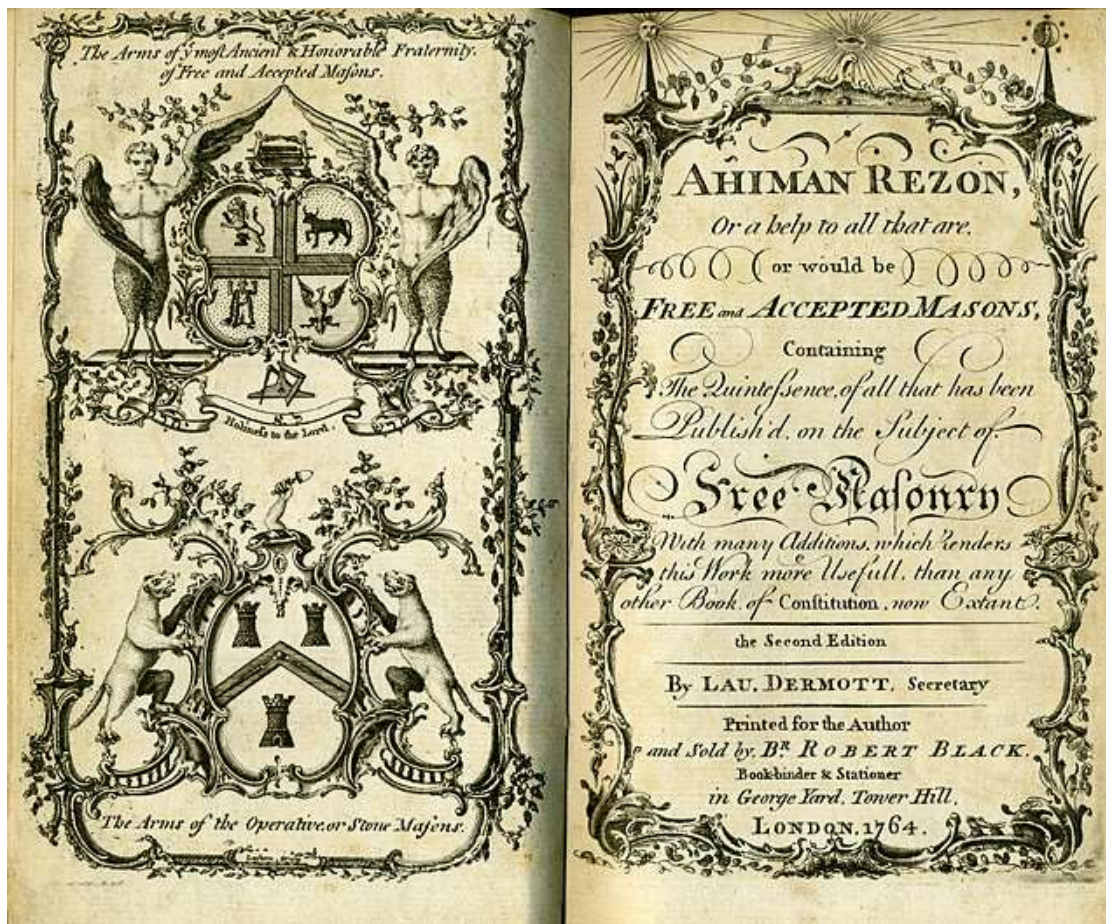 The Arms of yͤ most Ancient & Honorable Fraternity,
of Free and Accepted Masons.
Holiness to the Lord.
The Arms of the Operative, or Stone Masons.
AHIMAN REZON,
Or a help to all that are,
(or would be)
FREE and ACCEPTED MASONS,
Containing
The Quintessence, of all that has been
Publish'd, on the Subject of
Free Masonry
With many Additions, which renders
this Work more Usefull, than any
other Book, of Constitution, now Extant.
the Second Edition
By LAU. DERMOTT, Secretary
Printed for the Author
and Sold by, Bᴿ ROBERT BLACK,
Bookbinder & Stationer
in George Yard, Tower Hill,
LONDON, 1764.